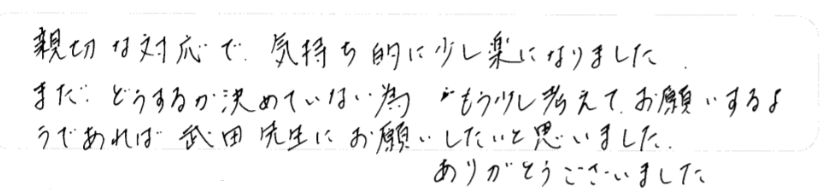 親切な対応で、気持ち的に少し楽になりました.
まだ、どうするか決めていない為、もう少し考えて、お願いするよ
うであれば 武田先生に お願いしたいと思いました.
ありがとうございました